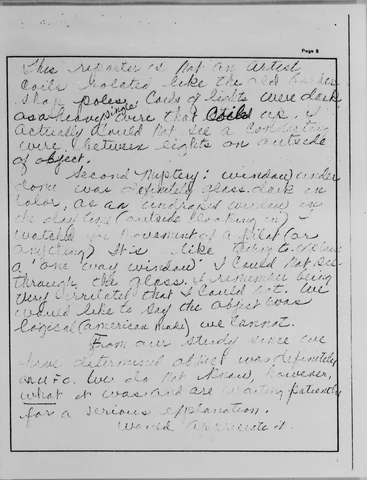 Page 8
This reporter is not an artist
Coils rotated like the old barber
shop poles. Coils of lights were dark
as a heavy single wire that coils up. I
actually could not see a connecting
wire between lights on outside
of object.
Second Mystery: window under
dome was definitely glass. dark in
color, as an undraped window in
the day time (outside looking in) I
watched for movement of a pilot (or
anything) It's like trying to
a 'one way window' I could not see
through the glass. I remember being
very irritated that I could not. We
would like to say the object was
logical (American make) we cannot.
From our study since we
have determined object was definitely
an U.F.O. We do not know, however,
what it was and are waiting patiently
for a serious explanation.
Would appreciate it.